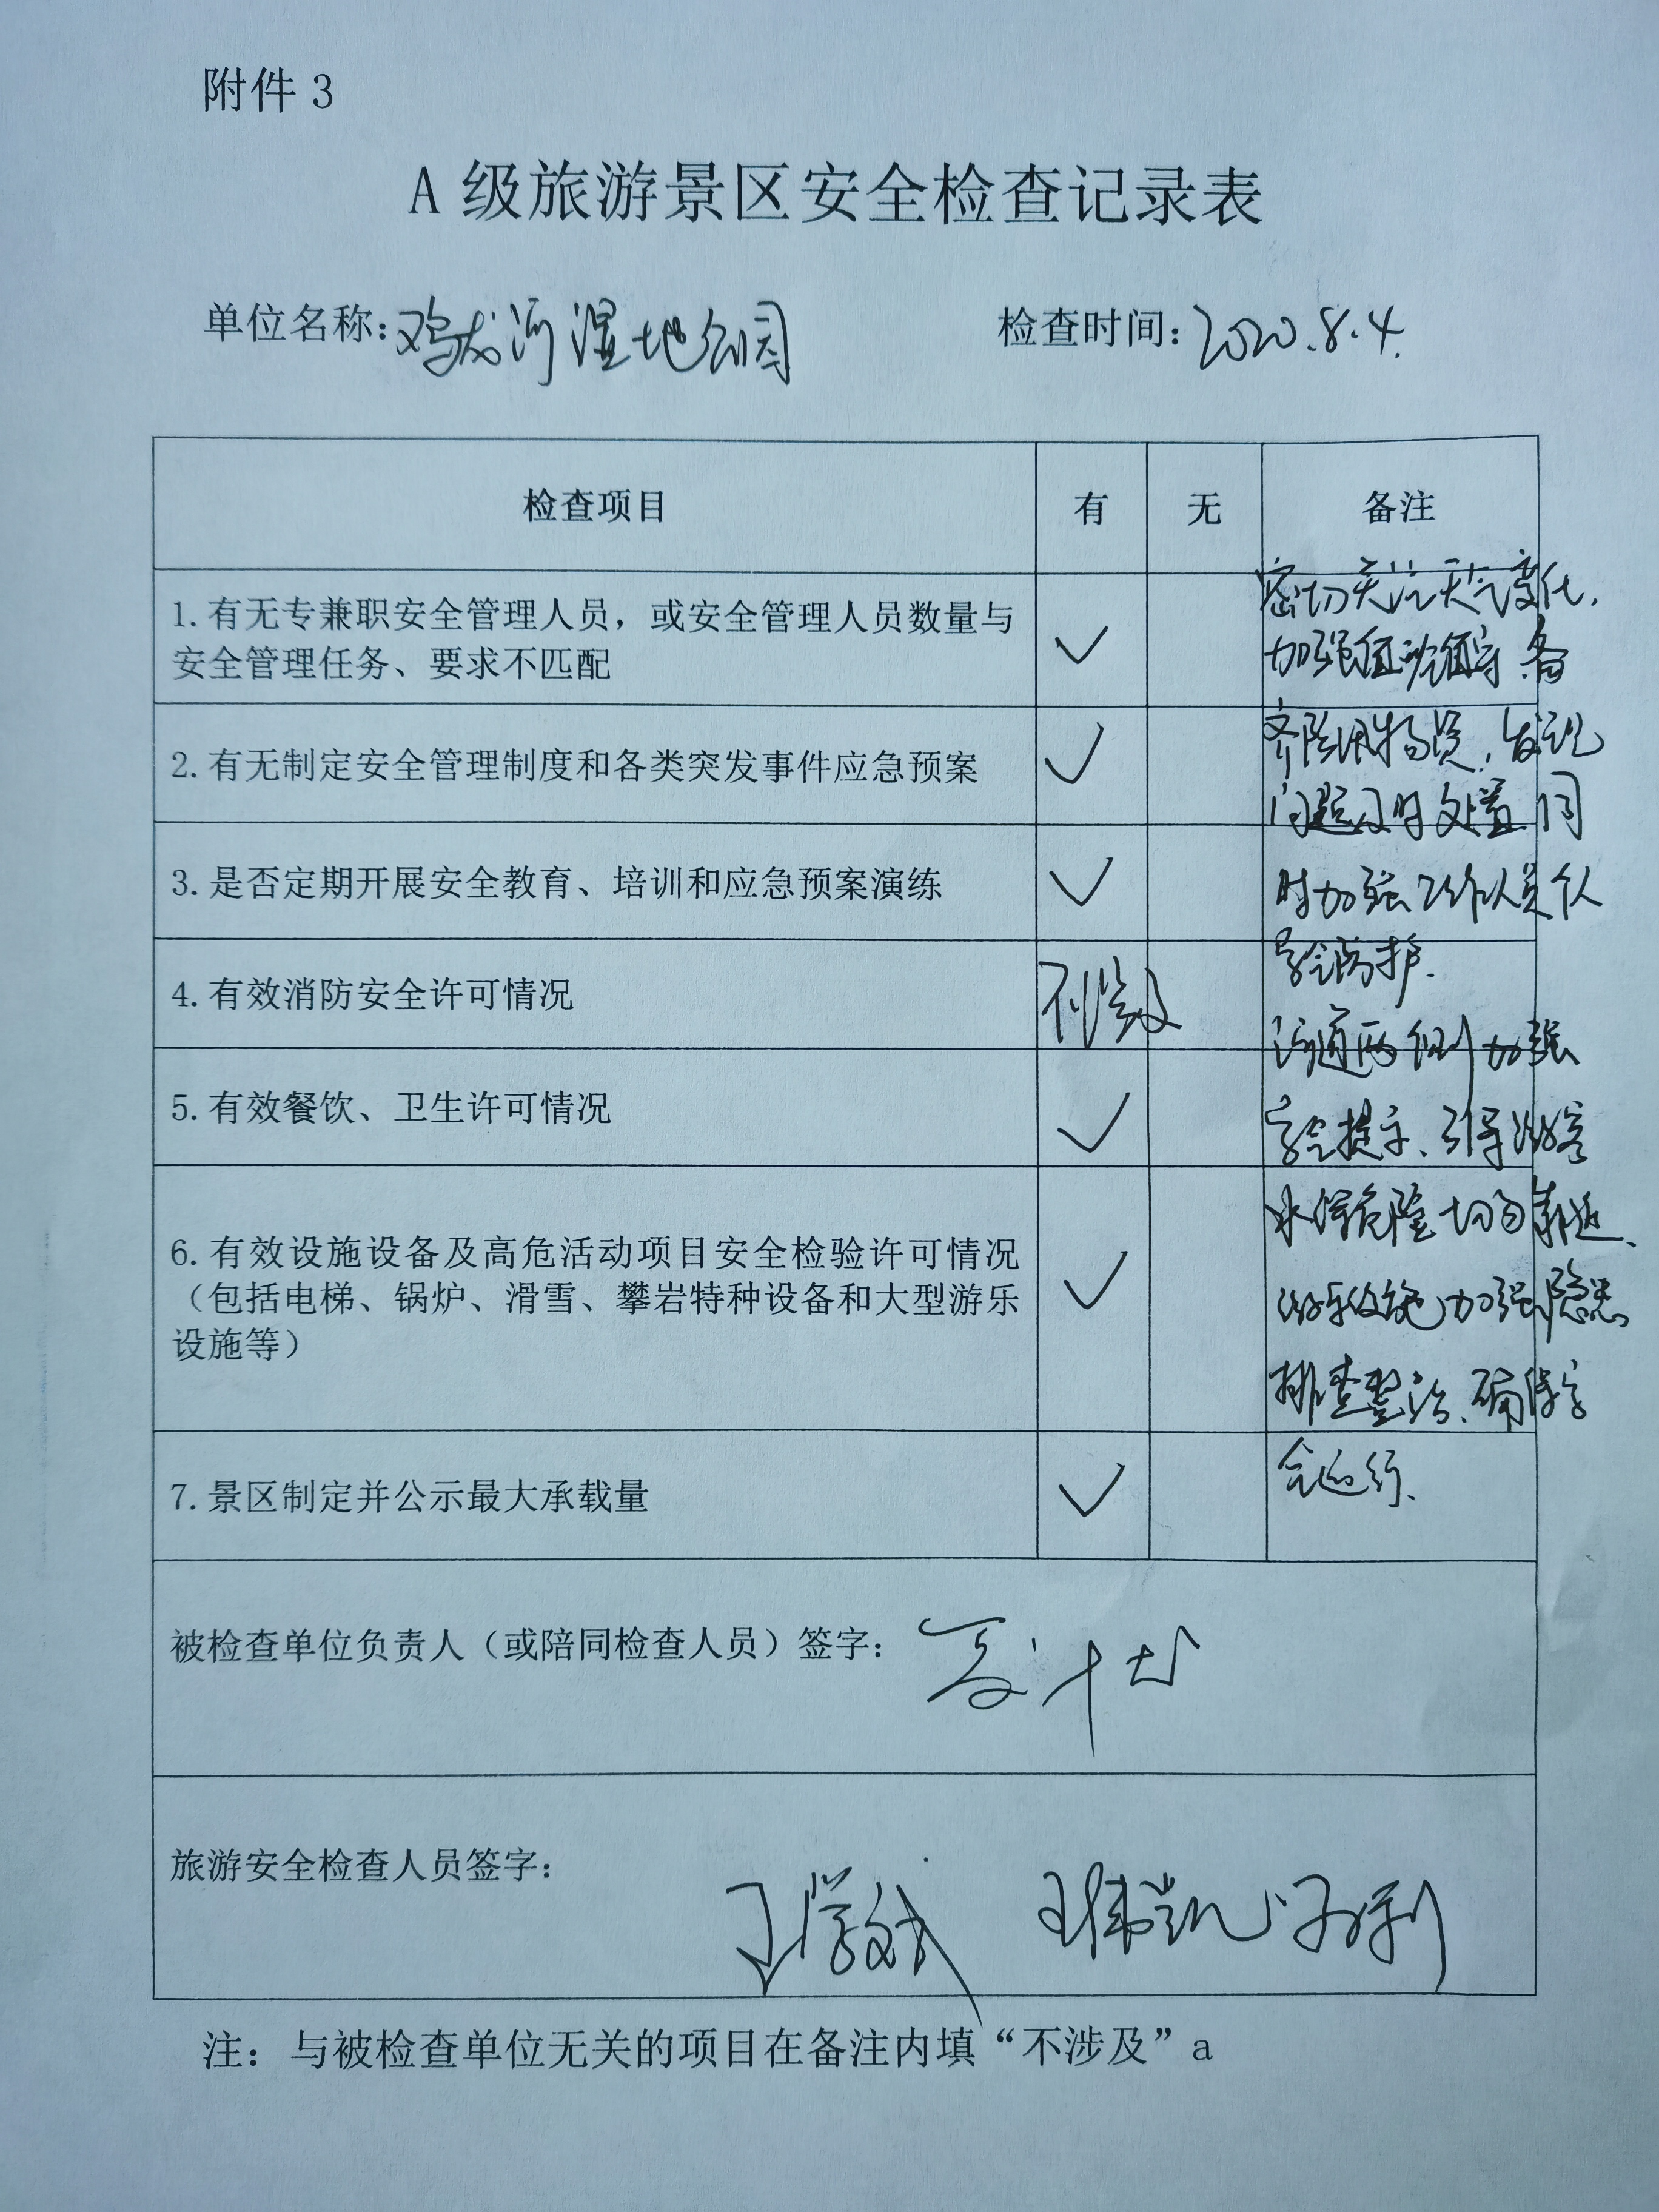 附件 3
A 级旅游景区安全检查记录表
单位名称:鸡龙河湿地公园 检查时间:2020.8.4.
检查项目 有 无 备注
1.有无专兼职安全管理人员，或安全管理人员数量与
安全管理任务、要求不匹配 ✓
2.有无制定安全管理制度和各类突发事件应急预案 ✓
3.是否定期开展安全教育、培训和应急预案演练 ✓
4.有效消防安全许可情况 不涉及
5.有效餐饮、卫生许可情况 ✓
6.有效设施设备及高危活动项目安全检验许可情况
（包括电梯、锅炉、滑雪、攀岩特种设备和大型游乐 ✓
设施等）
7.景区制定并公示最大承载量 ✓
密切关注天气变化,
加强值班值守 备
齐防汛物资,发现
问题及时处置 同
时加强工作人员个人
安全防护.
河道两侧加强
安全提示、引导游客
水深危险切勿靠近、
游乐设施加强隐患
排查整治、确保安
全运行、
被检查单位负责人（或陪同检查人员）签字:
旅游安全检查人员签字: 王学斌 王伟凯
注：与被检查单位无关的项目在备注内填“不涉及”a